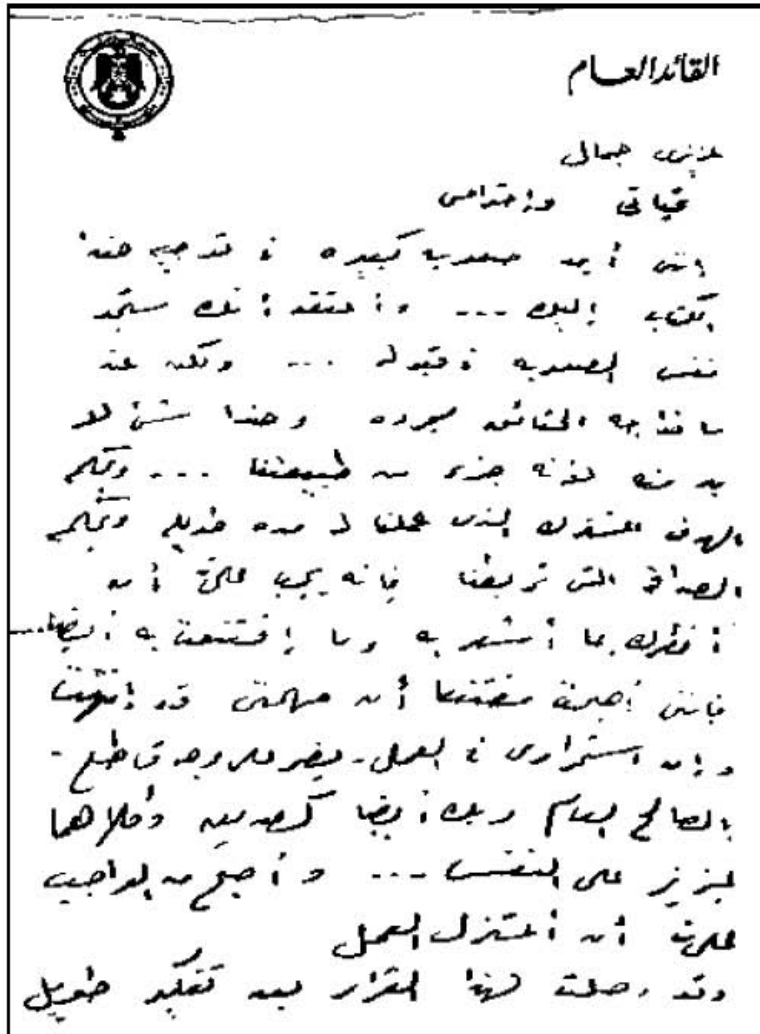 القائد العام
عزيزى جمال
تحياتى وإحترامى
إننى أجد صعوبه كبيره فى توجيه هذا
الكتاب إليك ... وأعتقد أنك ستجد
نفس الصعوبه فى قبوله ... ولكن عند
الحقائق مجرده وهذا شئ لا
بد منه لأنه جزء من طبيعتنا ... وبحكم
الهدف المشترك الذى عملنا له مده طويله وبحكم
الصداقه التى تربطنا فإنه يجب علىّ أن
أخطرك بما أشعر به وما إقتنعت به أيضا ...
فإننى أصبحت مقتنعا أن مهمتى قد إنتهت
وإن استمرارى فى العمل - يضر على وجه قاطع -
بالصالح العام وبك أيضا كصديق وكلاهما
عزيز على النفس ... وأصبح من الواجب
علىّ أن أعتزل العمل
وقد وصلت لهذا القرار بعد تفكير طويل